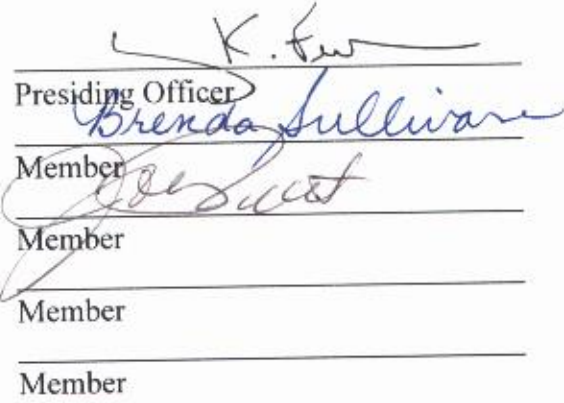 K.
Presiding Officer
Brenda Sullivan
Member
Joe
Member
Member
Member